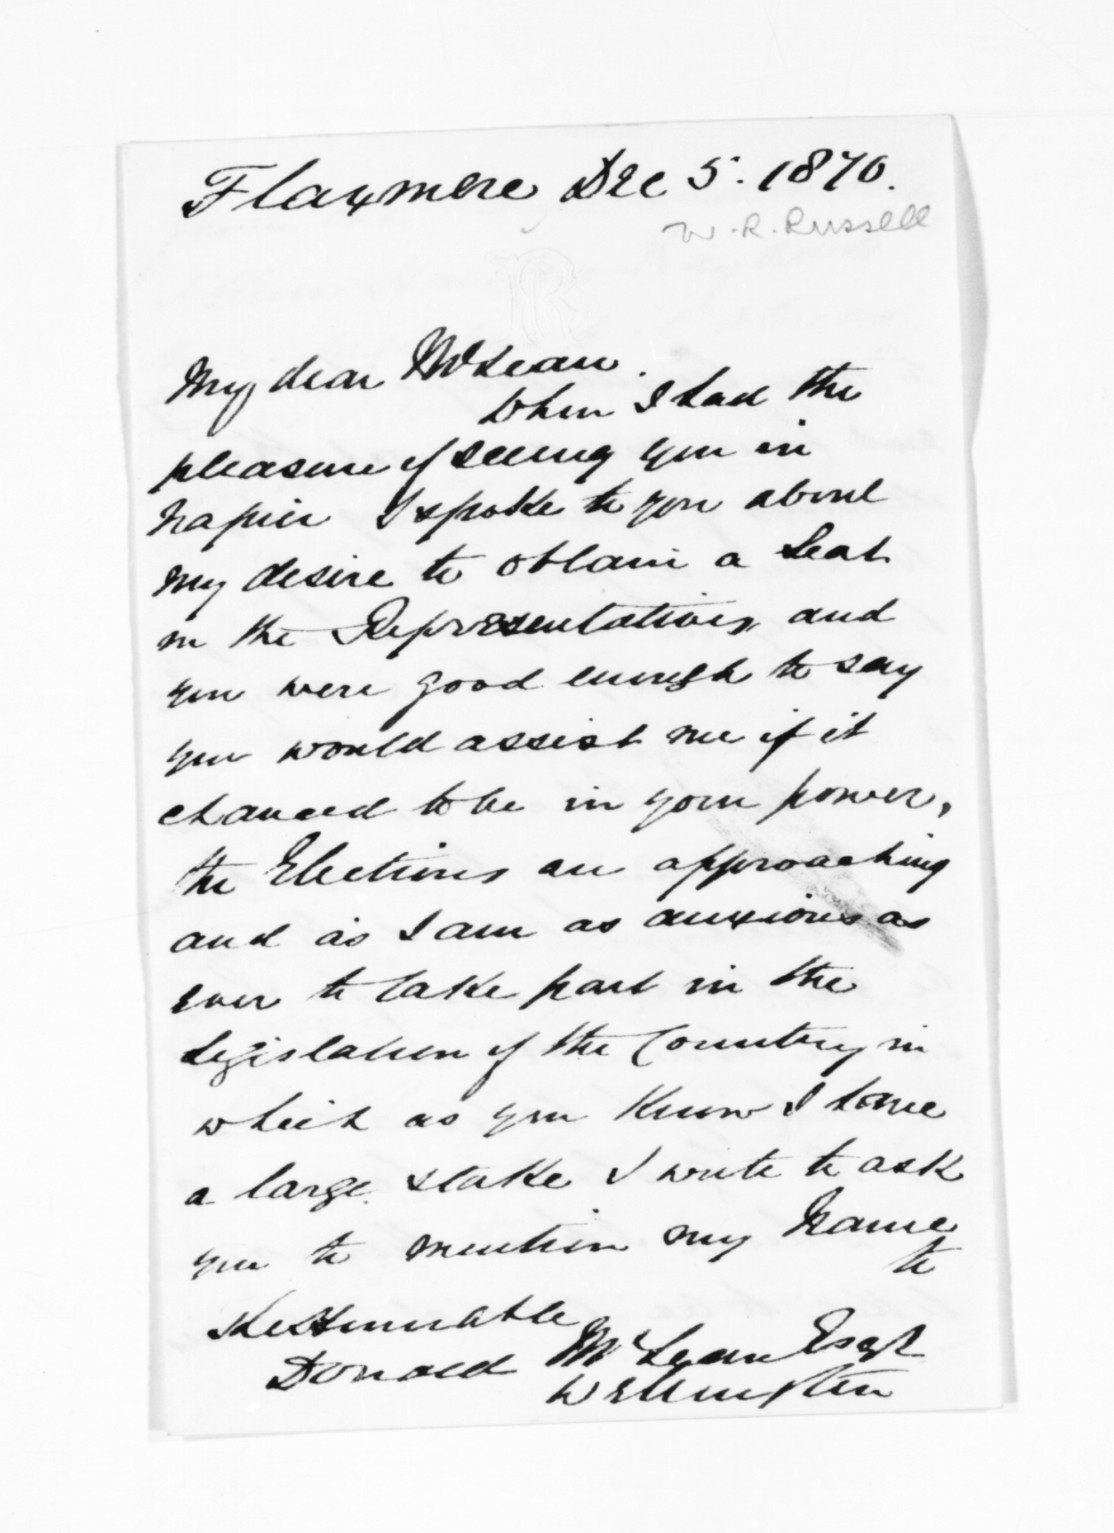 Flaxmere Dec 5. 1870.
W. R. Russell
My dear McLean.
When I had the
pleasure of seeing you in
Napier I spoke to you about
my desire to obtain a Seat
in the Representatives, and
you were good enough to say
you would assist me if it
chanced to be in your power,
the Elections are approaching
and as I am as anxious as
ever to take part in the
Legislation of the Country in
which as you know I have
a large stake I write to ask
you to mention my Name
to
The Honourable
Donald McLean Esqr
Wellington